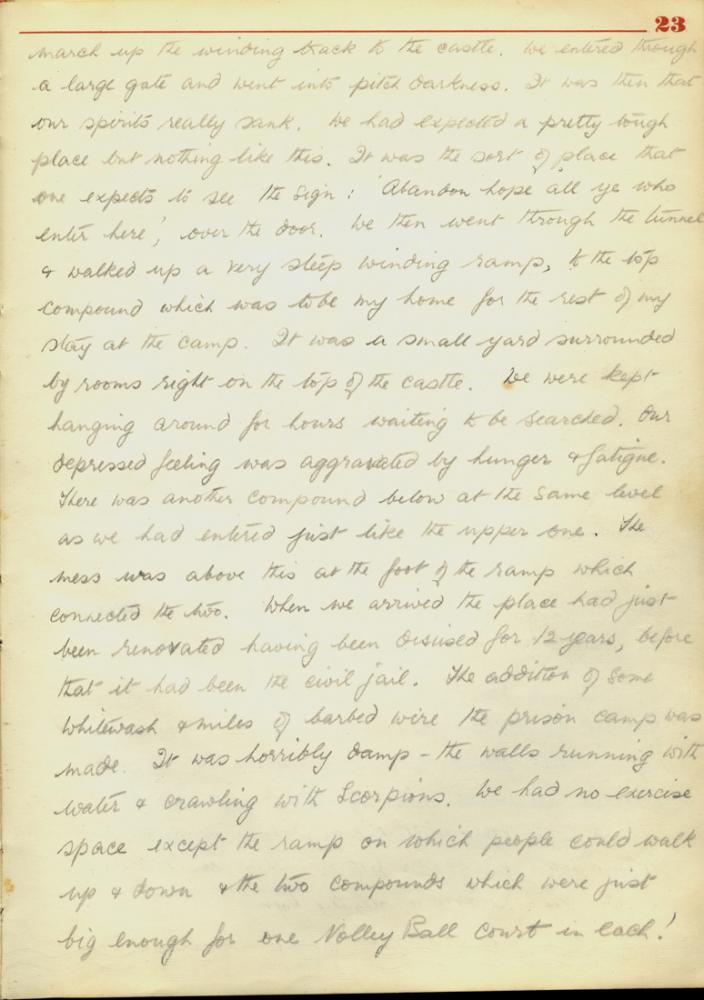 23
march up the winding track to the castle. We entered through
a large gate and went into pitch darkness. It was then that
our spirits really sank. We had expected a pretty tough
place but nothing like this. It was the sort of place that
one expects to see the sign : 'Abandon hope all ye who
enter here', over the door. We then went through the tunnel
& walked up a very steep winding ramp, to the top
compound which was to be my home for the rest of my
stay at the camp. It was a small yard surrounded
by rooms right on the top of the castle. We were kept
hanging around for hours waiting to be searched. Our
depressed feeling was aggravated by hunger & fatigue.
There was another compound below at the same level
as we had entered just like the upper one. The
mess was above this at the foot of the ramp which
connected the two. When we arrived the place had just
been renovated having been disused for 12 years, before
that it had been the civil jail. The addition of some
whitewash & miles of barbed wire the prison camp was
made. It was horribly damp - the walls running with
water & crawling with Scorpions. We had no exercise
space except the ramp on which people could walk
up & down & the two compounds which were just
big enough for one Volley Ball Court in each!